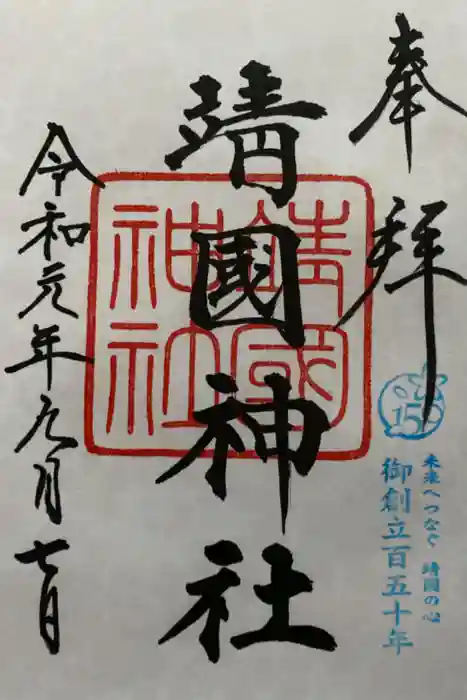 奉拝
150
未来へつなぐ 靖国の心
御創立百五十年
靖國神社
靖國神社
令和元年九月七日